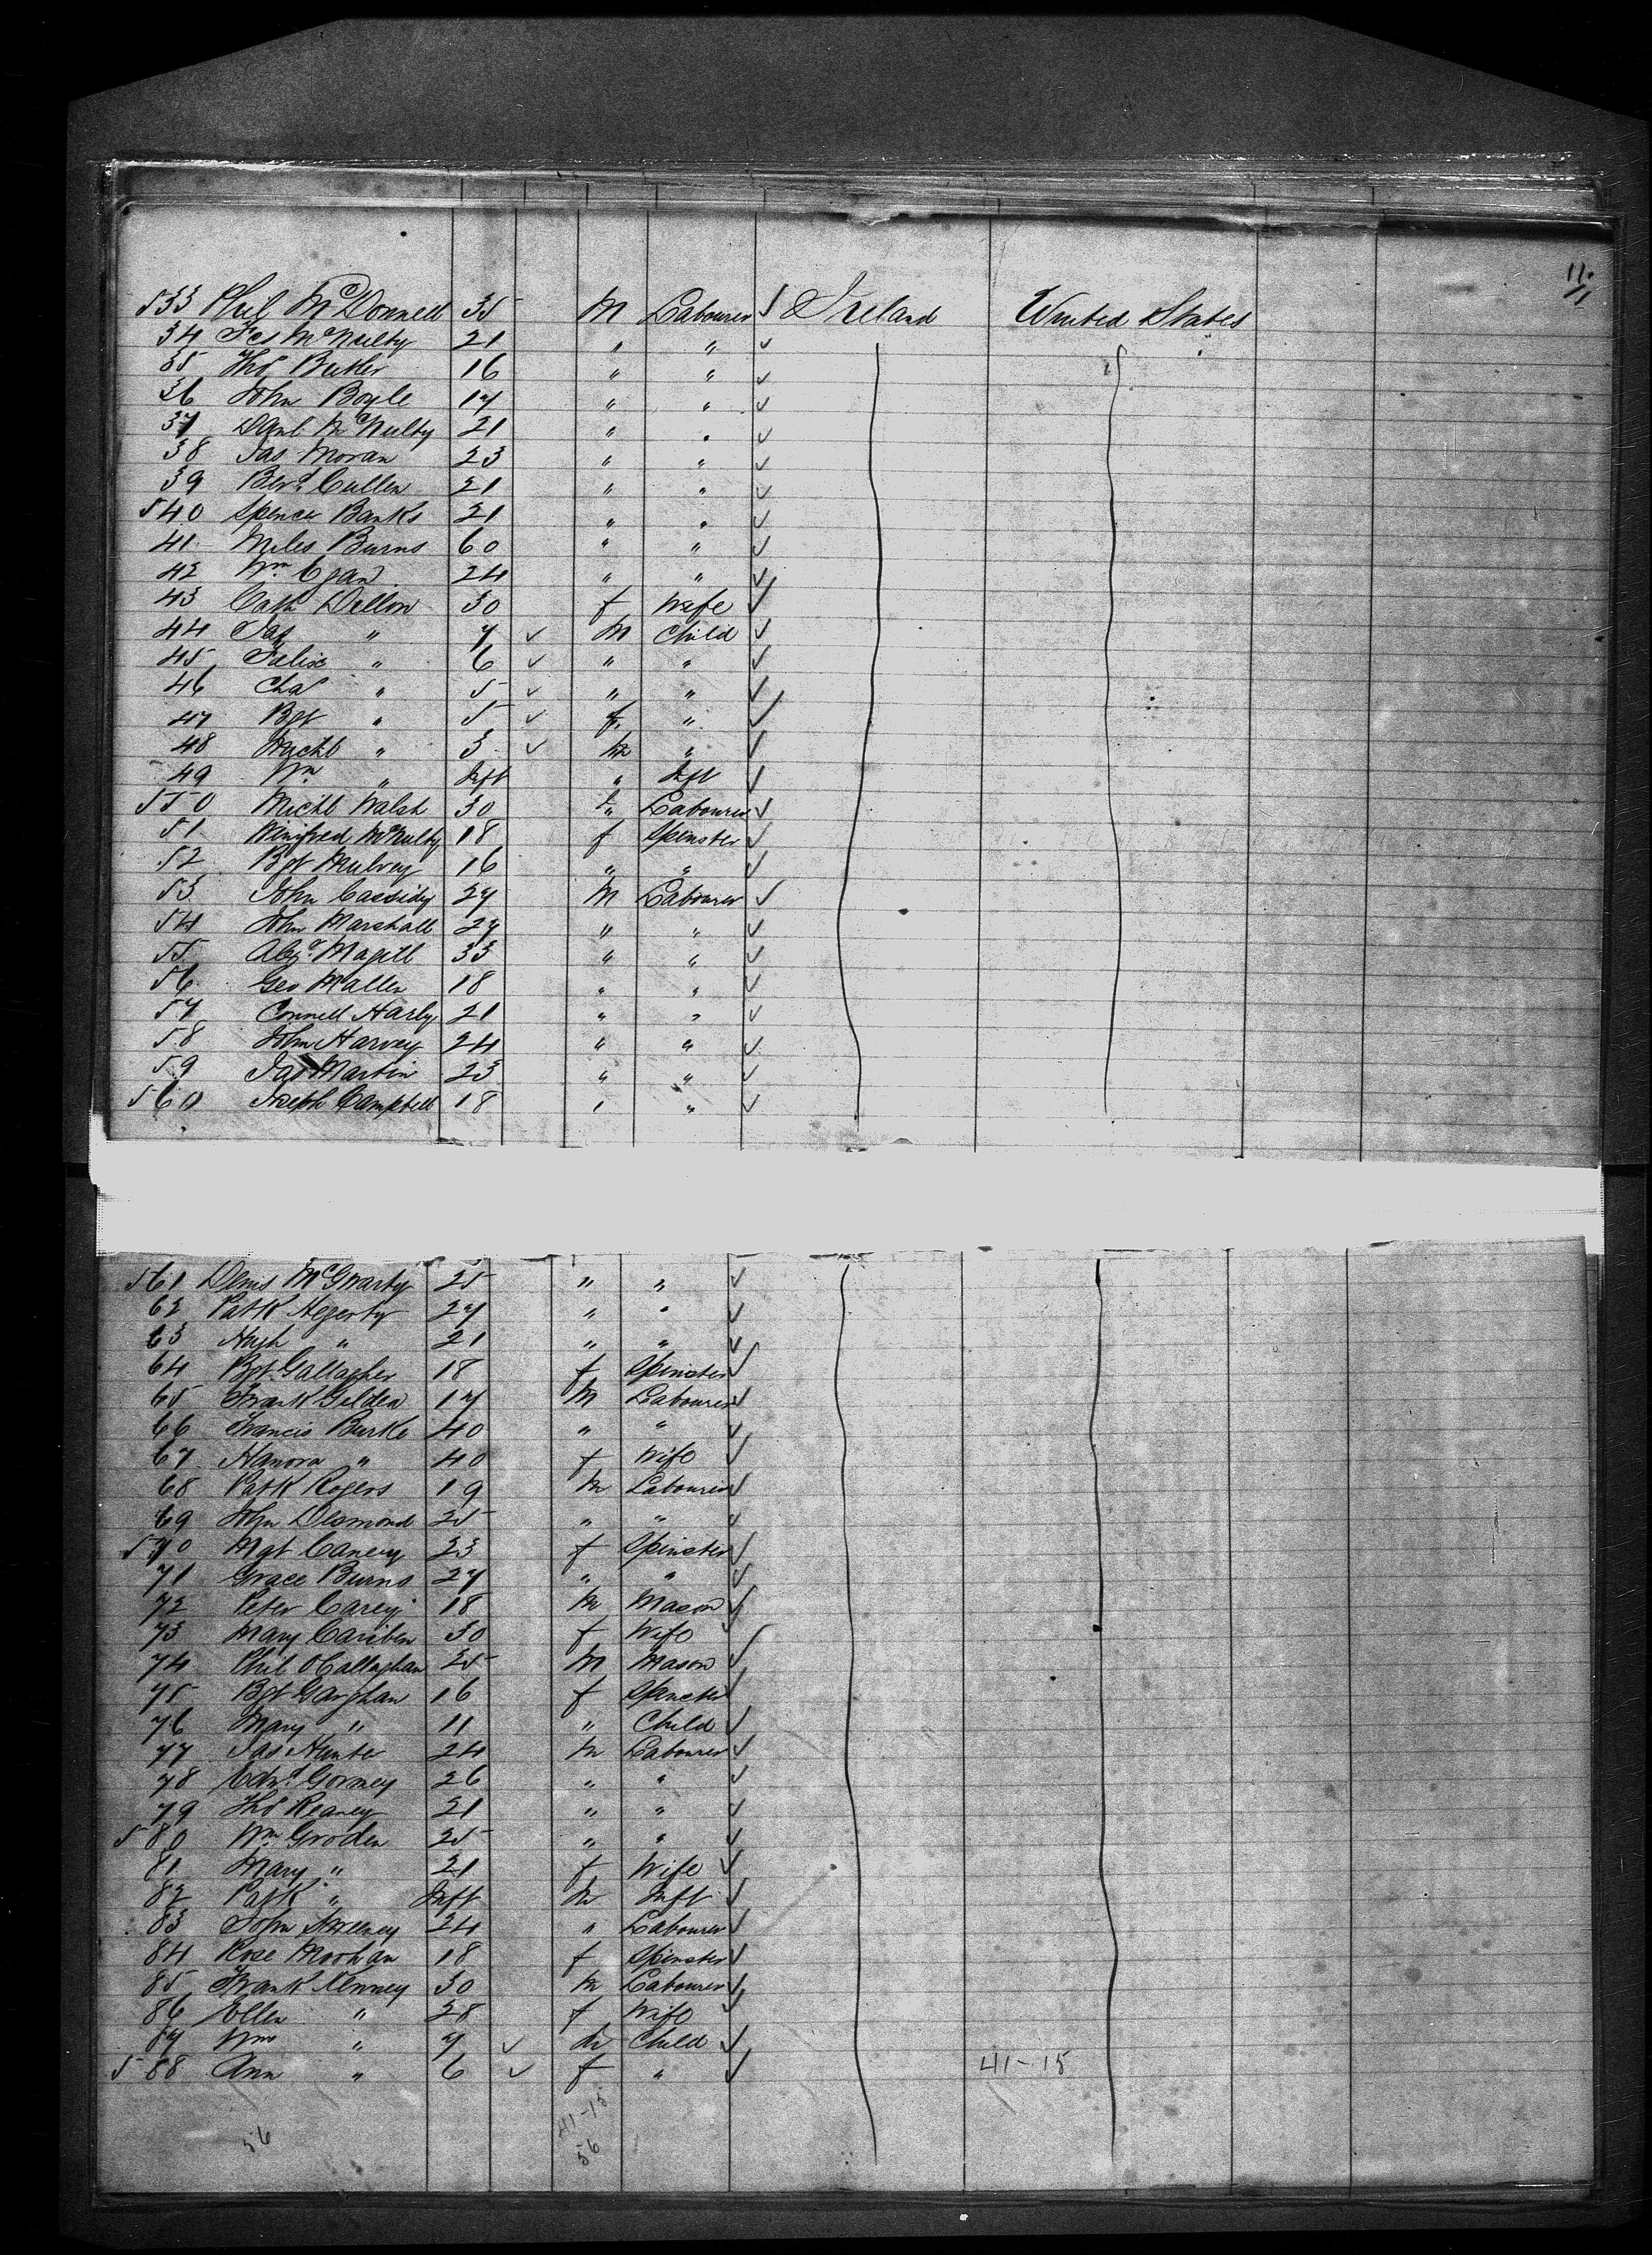 11.
533 Phil McDonnell 35 M Labourer ✓ Ireland United States
34 Jas McNulty 21 " " ✓
35 Thos Butler 16 " " ✓
36 John Boyle 17 " " ✓
37 Danl McNulty 21 " " ✓
38 Jas Moran 23 " " ✓
39 Bernd Cullen 21 " " ✓
540 Spencer Banks 21 " " ✓
41 Miles Burns 60 " " ✓
42 Wm Egan 24 " " ✓
43 Cath Dillon 30 f Wife ✓
44 Jas " 7 ✓ M Child ✓
45 Felix " 6 ✓ " " ✓
46 Chas " 5 ✓ " " ✓
47 Bgt " 5 ✓ f " ✓
48 Michl " 3 ✓ m " ✓
49 Wm " Inft " Inft ✓
550 Michl Walsh 30 " Labourer ✓
51 Winifred McNulty 18 f Spinster ✓
52 Bgt Mulvey 16 " " ✓
53 John Cassidy 27 M Labourer ✓
54 John Marshall 27 " " ✓
55 Alexr Magill 33 " " ✓
56 Geo Mallen 18 " " ✓
57 Connell Harly 21 " " ✓
58 John Harvey 24 " " ✓
59 Jas Martin 23 " " ✓
560 Joseph Campbell 18 " " ✓
561 Denis 25 " " ✓
62 Patk Hegerty 27 " " ✓
63 Hugh " 21 " " ✓
64 Bgt Gallagher 18 f Spinster ✓
65 Frank Gildea 17 M Labourer ✓
66 Francis Burke 40 " " ✓
67 Hanora " 40 f Wife ✓
68 Patk Rogers 19 m Labourer ✓
69 John Desmond 25 " " ✓
570 Mgt Canery 23 f Spinster ✓
71 Grace Burns 27 " " ✓
72 Peter Carey 18 m Mason ✓
73 Mary 30 f Wife ✓
74 Phil OCallaghan 25 M Mason ✓
75 Bgt Garghan 16 f Spinster ✓
76 Mary " 11 " Child ✓
77 Jas Hunter 24 m Labourer ✓
78 Edwd Gormey 26 " " ✓
79 Thos Reaney 21 " " ✓
580 Wm Groden 25 " " ✓
81 Mary " 21 f Wife ✓
82 Patk " Inft m Inft ✓
83 John Sweeney 24 " Labourer ✓
84 Rose Moohan 18 f Spinster ✓
85 Frank Kenney 30 m Labourer ✓
86 Ellen " 28 f Wife ✓
87 Wm " 7 ✓ m Child ✓
588 Ann " 6 ✓ f " ✓ 41-15
41-15
56 56